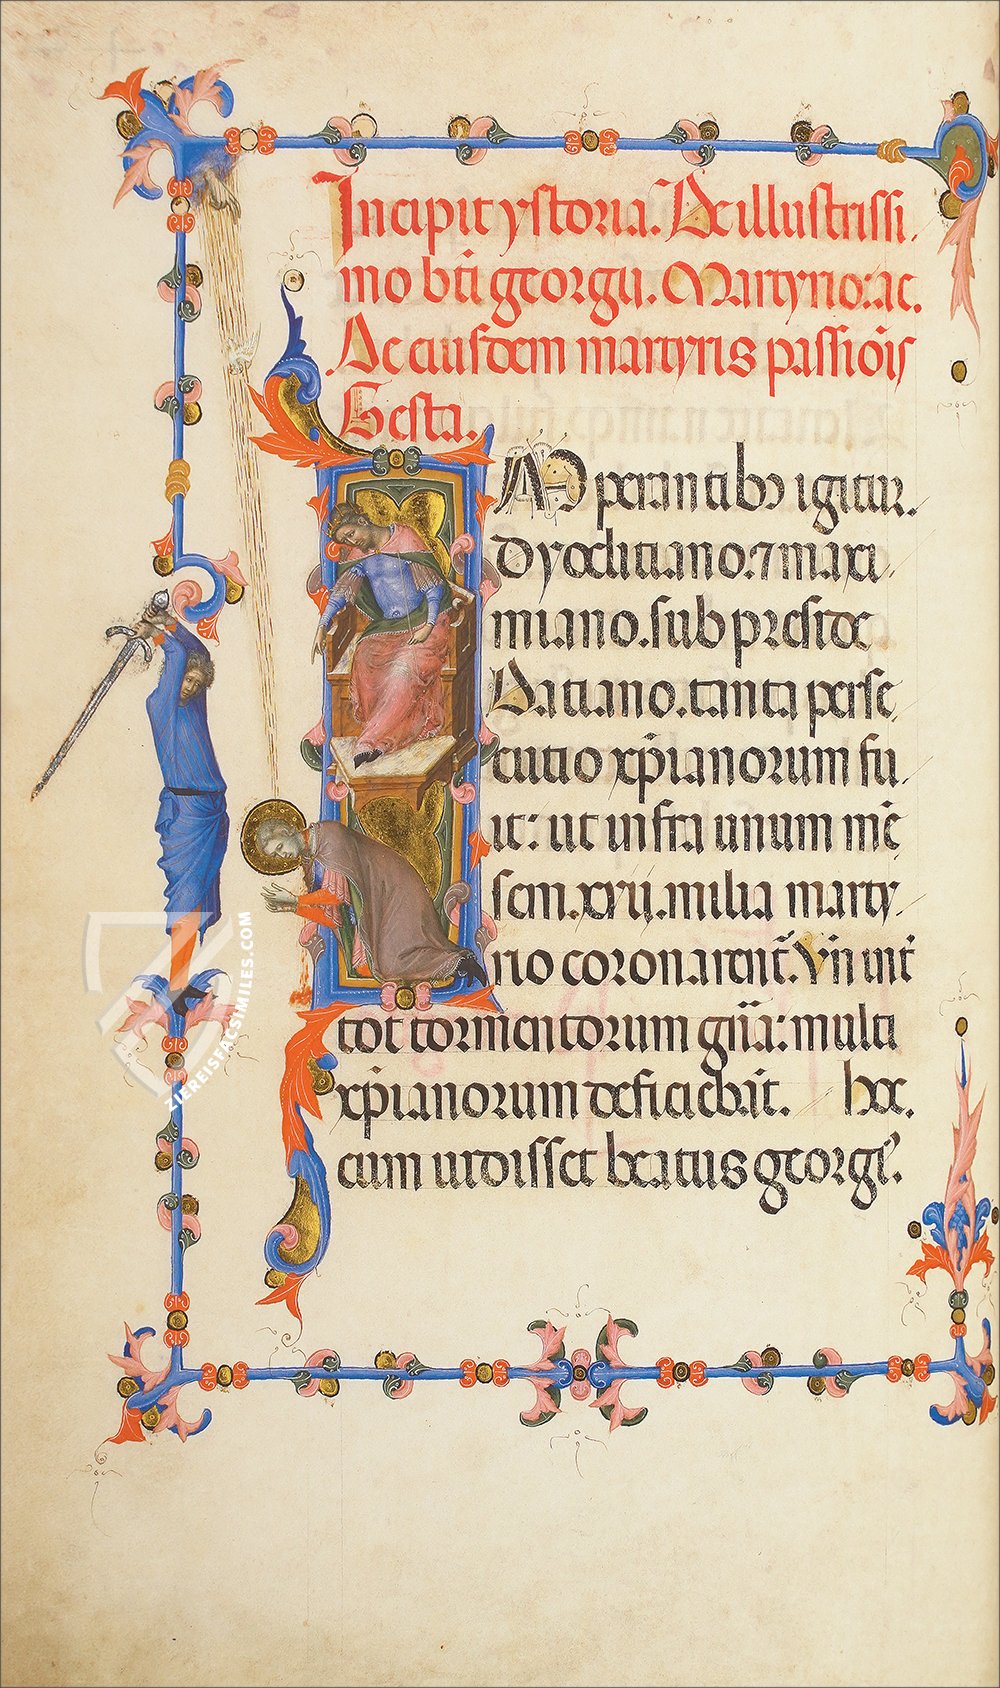 Incipit ystoria. De illustrissi
mo bti georgii. Martyrio: ac.
Ac eiusdem martyris passiois
Gesta.
IMperantibus igitur.
Dyoclitiano. ⁊ maxi
miano. sub preside
Datiano. tanta perse
cutio xpianorum fu
it: ut infra unum me
sem. xvii. milia marty
rio coronarent. Vn int
tot tormentorum gna: multi
xpianorum deficiebat. hec.
cum vidisset beatus georgi
ZIEREISFACSIMILES.COM